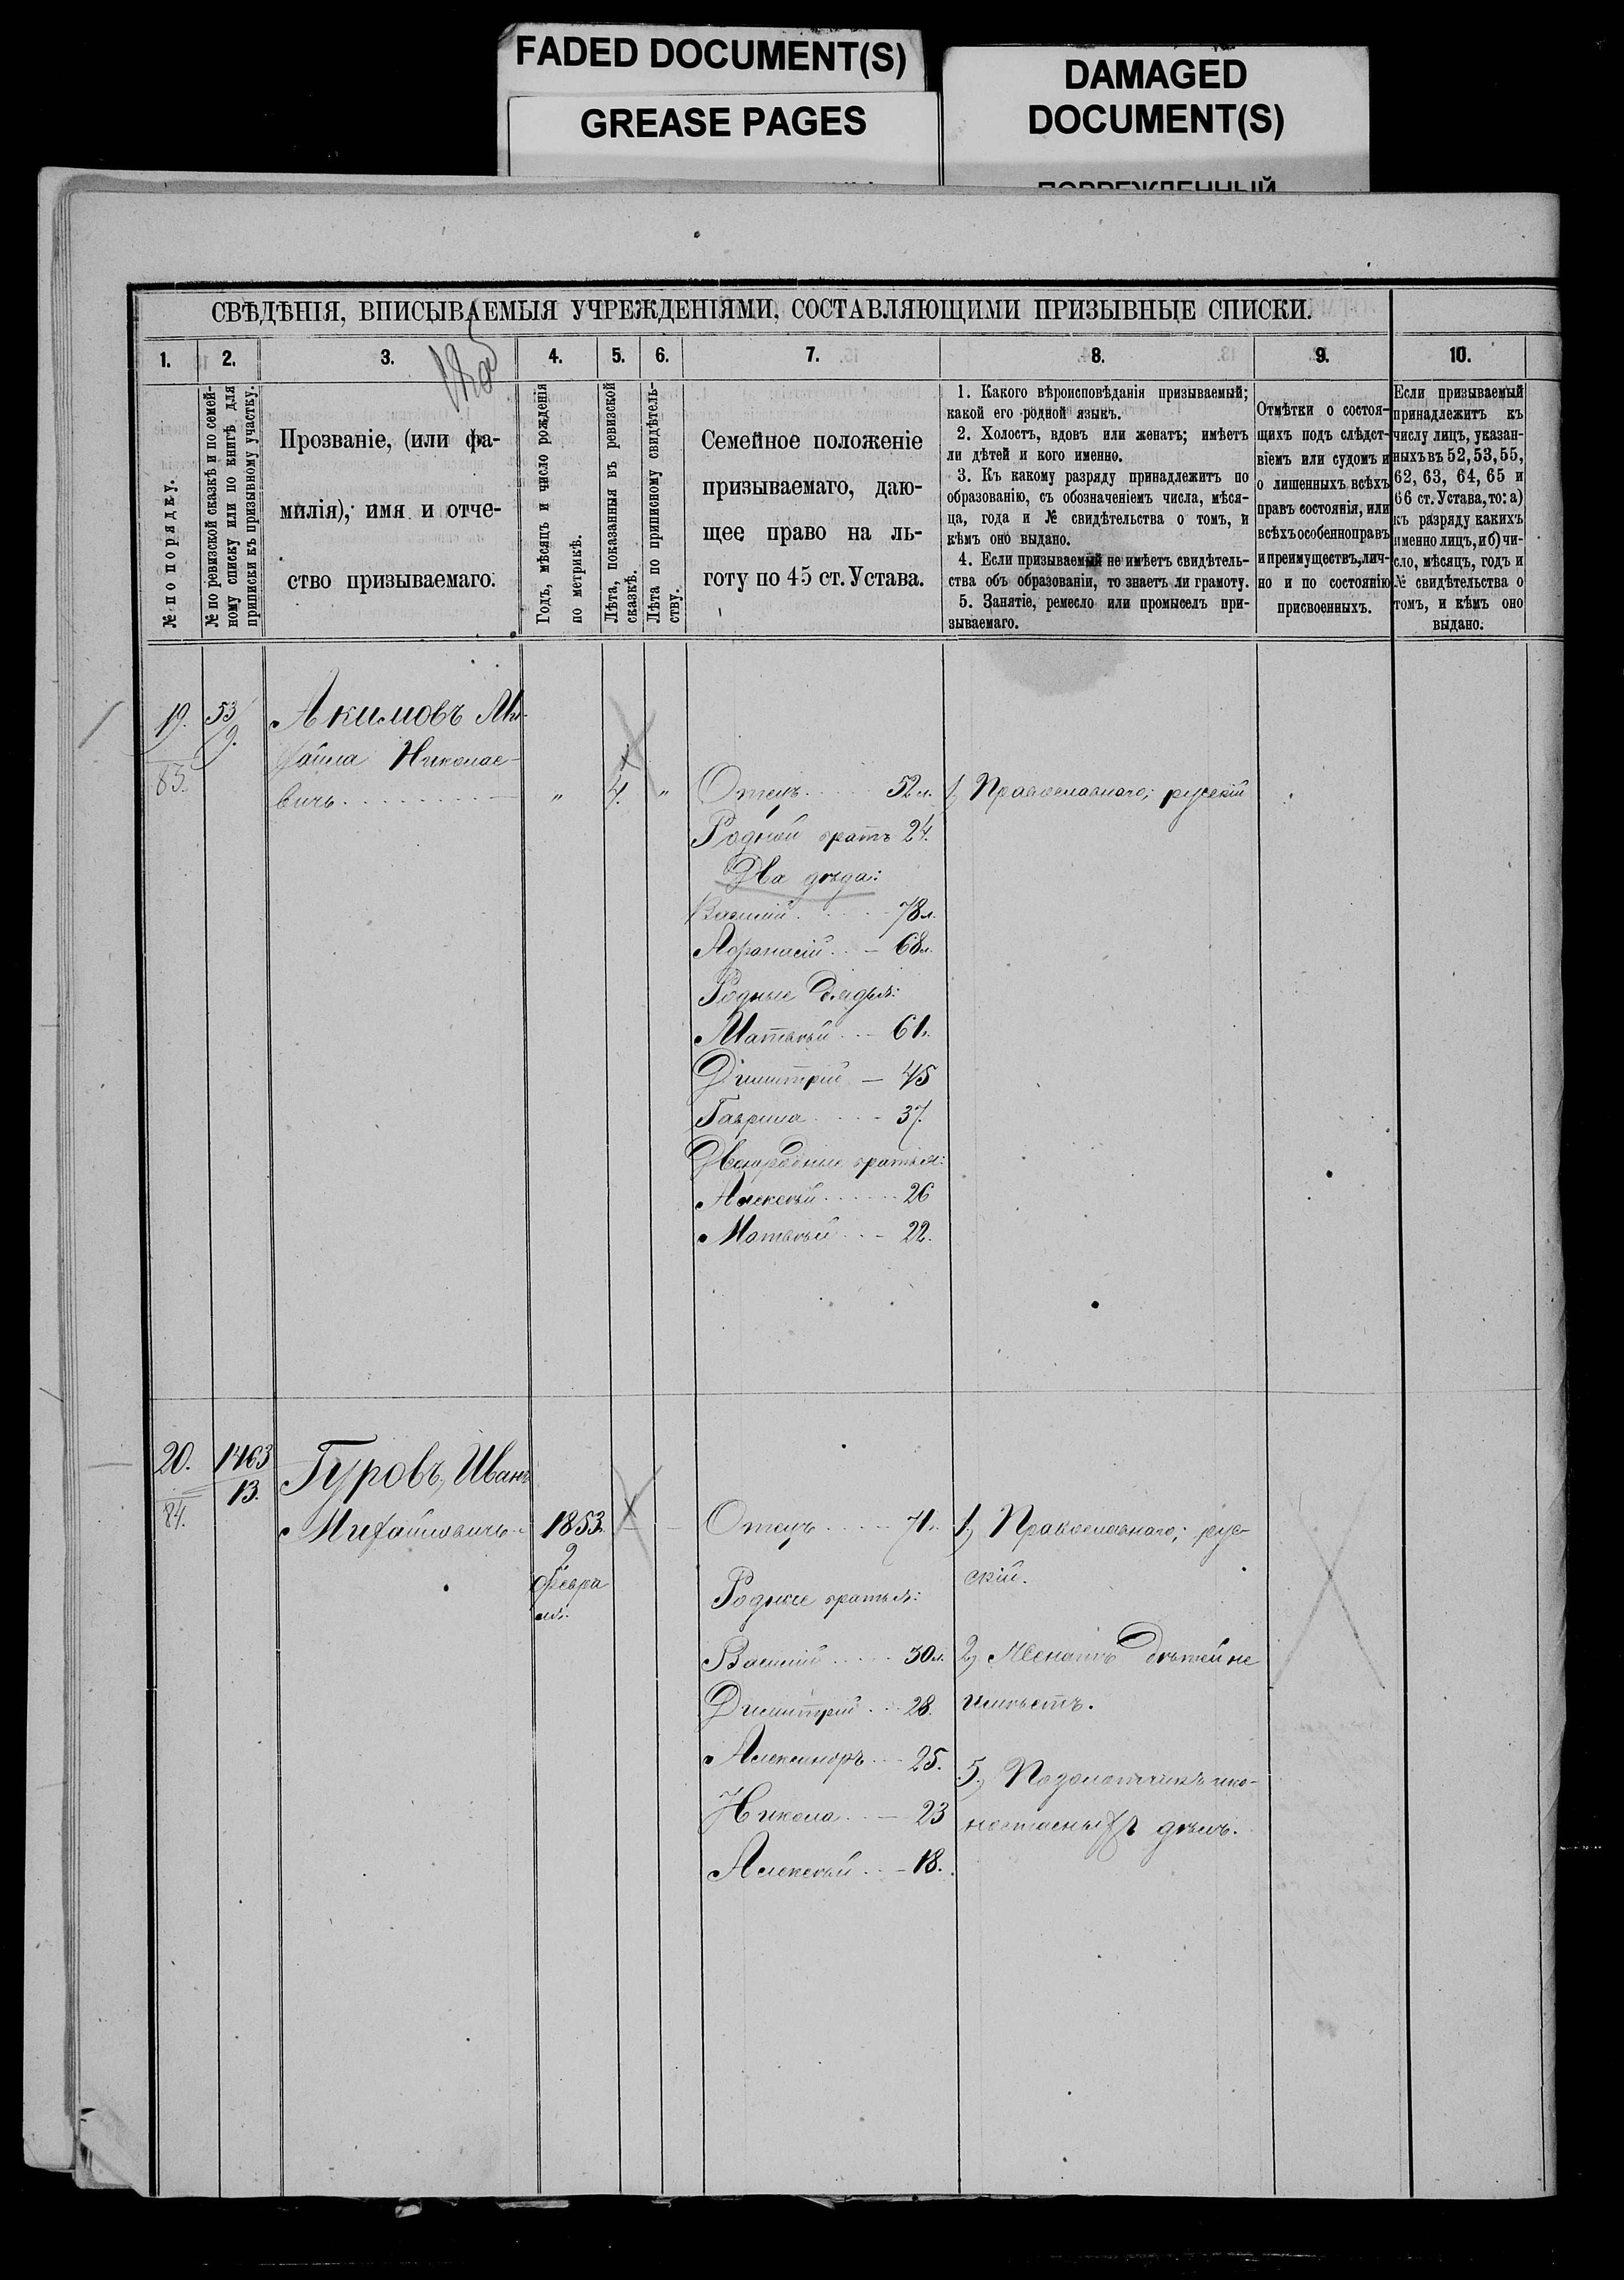 FADED DOCUMENT(S)
GREASE PAGES
DAMAGED
DOCUMENT(S)
ПОВРЕЖДЕННЫЙ
СВѢДѢНІЯ, ВПИСЫВАЕМЫЯ УЧРЕЖДЕНІЯМИ, СОСТАВЛЯЮЩИМИ ПРИЗЫВНЫЕ СПИСКИ.
1.
2.
3.
4.
5.
6.
7.
8.
9.
10.
№ по порядку.
№ по ревизской сказкѣ и по семей-
ному списку или по книгѣ для
приписки къ призывному участку.
Прозваніе, (или фа-
милія), имя и отче-
ство призываемаго.
Годъ, мѣсяцъ и число рожденія
по метрикѣ.
Лѣта, показанныя въ ревизской
сказкѣ.
Лѣта по приписному свидѣтель-
ству.
Семейное положеніе
призываемаго, даю-
щее право на ль-
готу по 45 ст. Устава.
1. Какого вѣроисповѣданія призываемый;
какой его родной языкъ.
2. Холостъ, вдовъ или женатъ; имѣетъ
ли дѣтей и кого именно.
3. Къ какому разряду принадлежитъ по
образованію, съ обозначеніемъ числа, мѣся-
ца, года и № свидѣтельства о томъ, и
кѣмъ оно выдано.
4. Если призываемый не имѣетъ свидѣтель-
ства объ образованіи, то знаетъ ли грамоту.
5. Занятіе, ремесло или промыселъ при-
зываемаго.
Отмѣтки о состоя-
щихъ подъ слѣдст-
віемъ или судомъ и
о лишенныхъ всѣхъ
правъ состоянія, или
всѣхъ особенно правъ
и преимуществъ, лич-
но и по состоянію
присвоенныхъ.
Если призываемый
принадлежитъ къ
числу лицъ, указан-
ныхъ въ 52, 53, 55,
62, 63, 64, 65 и
66 ст. Устава, то: а)
къ разряду какихъ
именно лицъ, и б) чи-
сло, мѣсяцъ, годъ и
№ свидѣтельства о
томъ, и кѣмъ оно
выдано.
19.
83.
53
9.
Акимовъ Ми-
хаила Николае-
вичъ
"
4.
"
Отецъ 52 л.
Родной братъ 24.
Два дѣда:
Василій 78 л.
Афанасій 68 л.
Родные дядья:
Матвѣй 61.
Димитрій 45
Гаврила 37.
Двоюродные братья:
Алексѣй 26
Матвѣй 22.
1, Православнаго; русскій
20.
84.
1463
13.
Гуровъ, Иванъ
Михайловичъ
1853.
2
Февра
ля.
Отецъ 71.
Родные братья:
Василій 30 л.
Димитрій 28.
Александръ 25.
Никола 23
Алексѣй 18.
1, Православнаго; рус-
скій.
2, Женатъ дѣтей не
имѣетъ.
5, Позолотчикъ ико-
ностасныхъ дѣлъ.